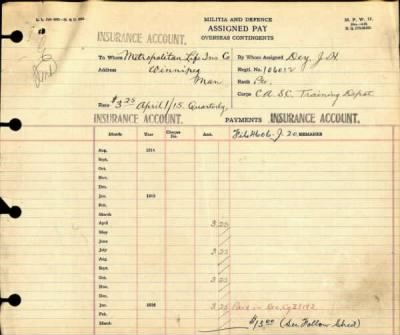 MILITIA AND DEFENCE
M. F. W. 11.
ASSIGNED PAY
OVERSEAS CONTINGENTS
INSURANCE ACCOUNT.
To Whom Metropolitan Life Ins Co By Whom Assigned Dey, J. H.
Address Winnipeg Regtl. No. 106012
Man Rank Pte.
Corps C A S C. Training Depot
Rate $3.25 April 1/15 Quarterly
INSURANCE ACCOUNT. PAYMENTS INSURANCE ACCOUNT.
Month Year Cheque No. Amt. REMARKS
Aug. 1914
Sept.
Oct.
Nov.
Dec.
Jan. 1915
Feb.
March
April 3.25
May
June
July 3.25
Aug.
Sept.
Oct. 3.25
Nov.
Dec.
Jan. 1916 3.25 Paid in
Feb. $13.00 (See Follow Sheet)
March